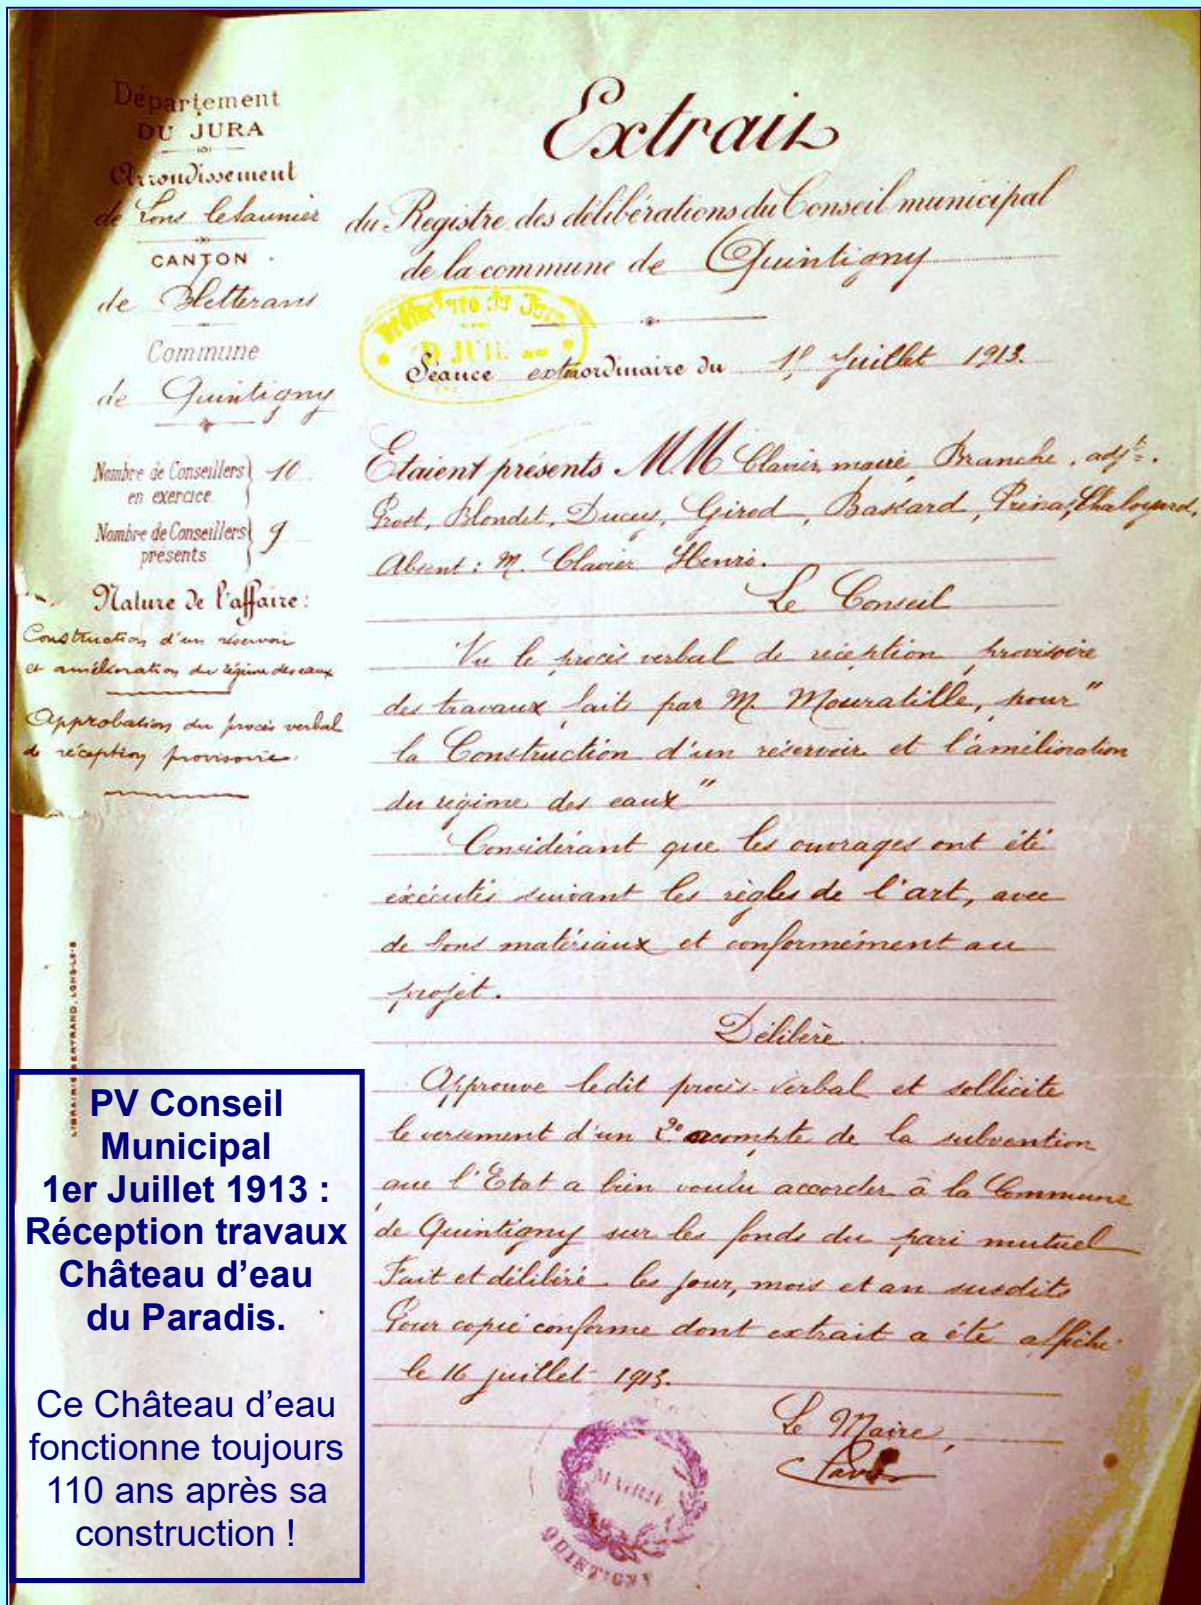 Département
DU JURA
Arrondissement
de Lons le Saunier
CANTON
de Bletterans
Commune
de Quintigny
Nombre de Conseillers en exercice } 10
Nombre de Conseillers présents } 9
Nature de l'affaire :
Construction d'un réservoir
et amélioration du régime des eaux
Approbation du procès verbal
de réception provisoire.
Extrait
du Registre des délibérations du Conseil municipal
de la commune de Quintigny
Préfecture du Jura
JUIL
Séance extraordinaire du 1er Juillet 1913.
Etaient présents MM Clavier, maire Branche, adjt.
Prost, Blondet, Ducey, Girod, Bassard,
Absent : M. Clavier Henri.
Le Conseil
Vu le procès verbal de réception provisoire
des travaux faits par M. Mouratille, pour "
la Construction d'un réservoir et l'amélioration
du régime des eaux "
Considérant que les ouvrages ont été
éxécutés suivant les règles de l'art, avec
de bons matériaux et conformément au
projet.
Délibère
Approuve ledit procès-verbal et sollicite
le versement d'un 2e acompte de la subvention
que l'Etat a bien voulu accorder à la Commune
de Quintigny sur les fonds du pari mutuel
Fait et délibéré les jour, mois et an susdits
Pour copie conforme dont extrait a été affiché
le 16 juillet 1913.
Le Maire,
MAIRIE
QUINTIGNY
LIBRAIRIE BERTRAND, LONS-LE-S
PV Conseil
Municipal
1er Juillet 1913 :
Réception travaux
Château d'eau
du Paradis.
Ce Château d'eau
fonctionne toujours
110 ans après sa
construction !